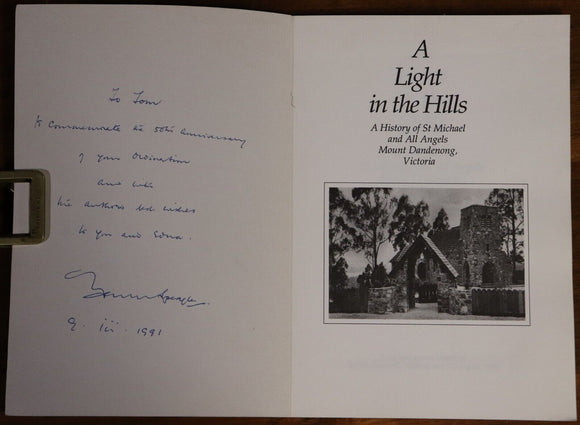 To Tom
to commemorate the 50th anniversary
of your Ordination
and with
the author's best wishes
to you and Edna.
9. iii. 1991
A
Light
in the Hills
A History of St Michael
and All Angels
Mount Dandenong,
Victoria